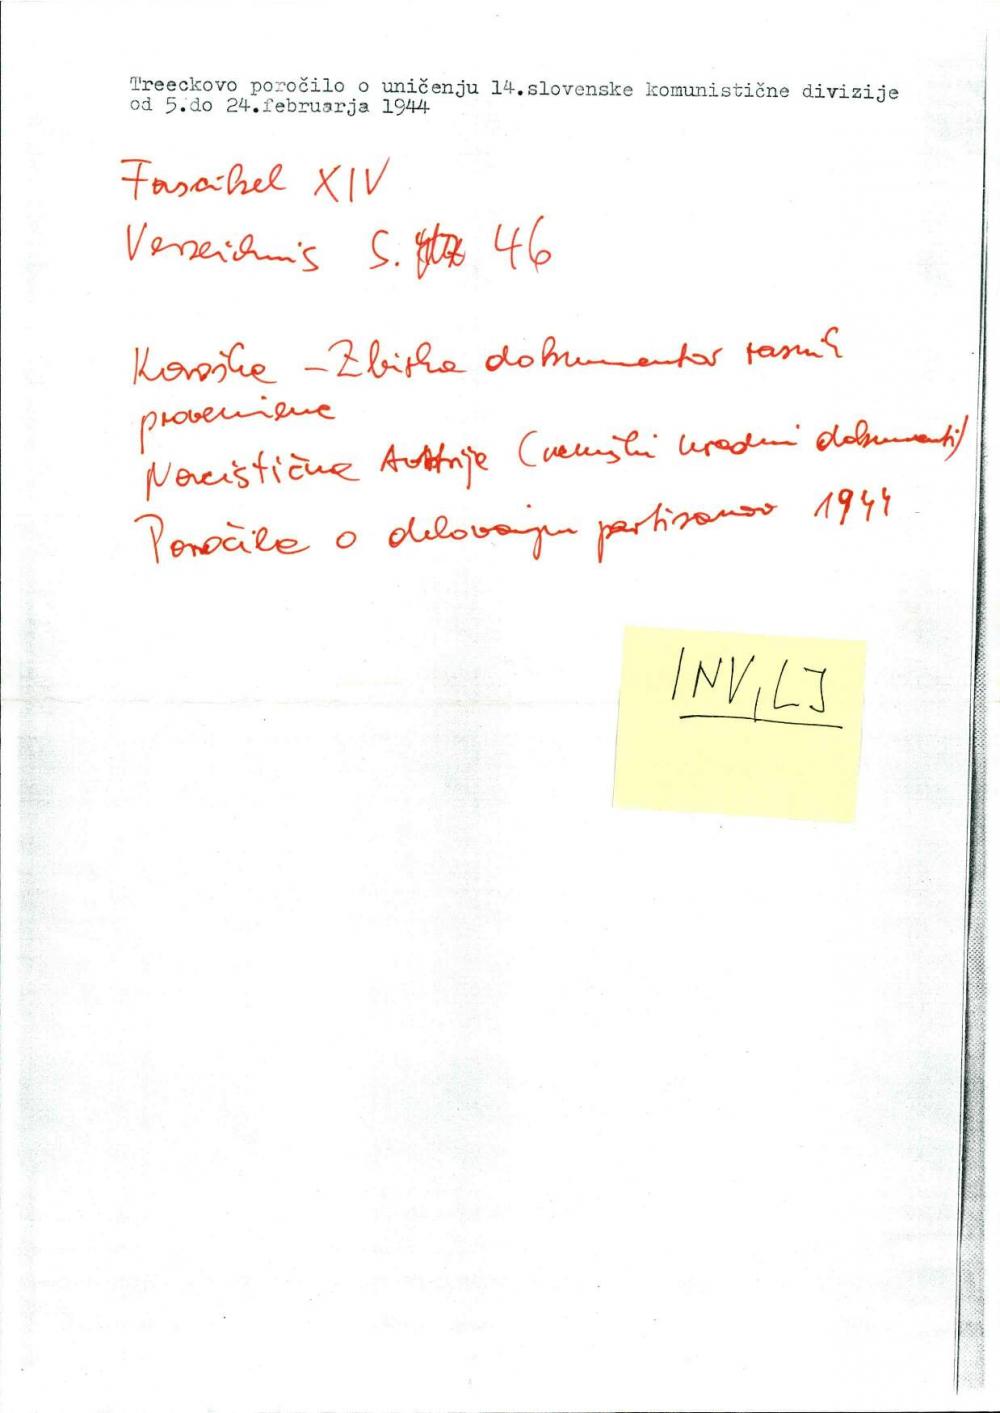 Treeckovo poročilo o uničenju 14.slovenske komunistične divizije
od 5.do 24.februarja 1944
Fascikel XIV
Verzeichnis S. 46
Koroška - Zbirka dokumentov raznih
provenienc
Nacistične Avstrije (nemški uradni dokumenti)
Poročila o delovanju partizanov 1944
INV, LJ